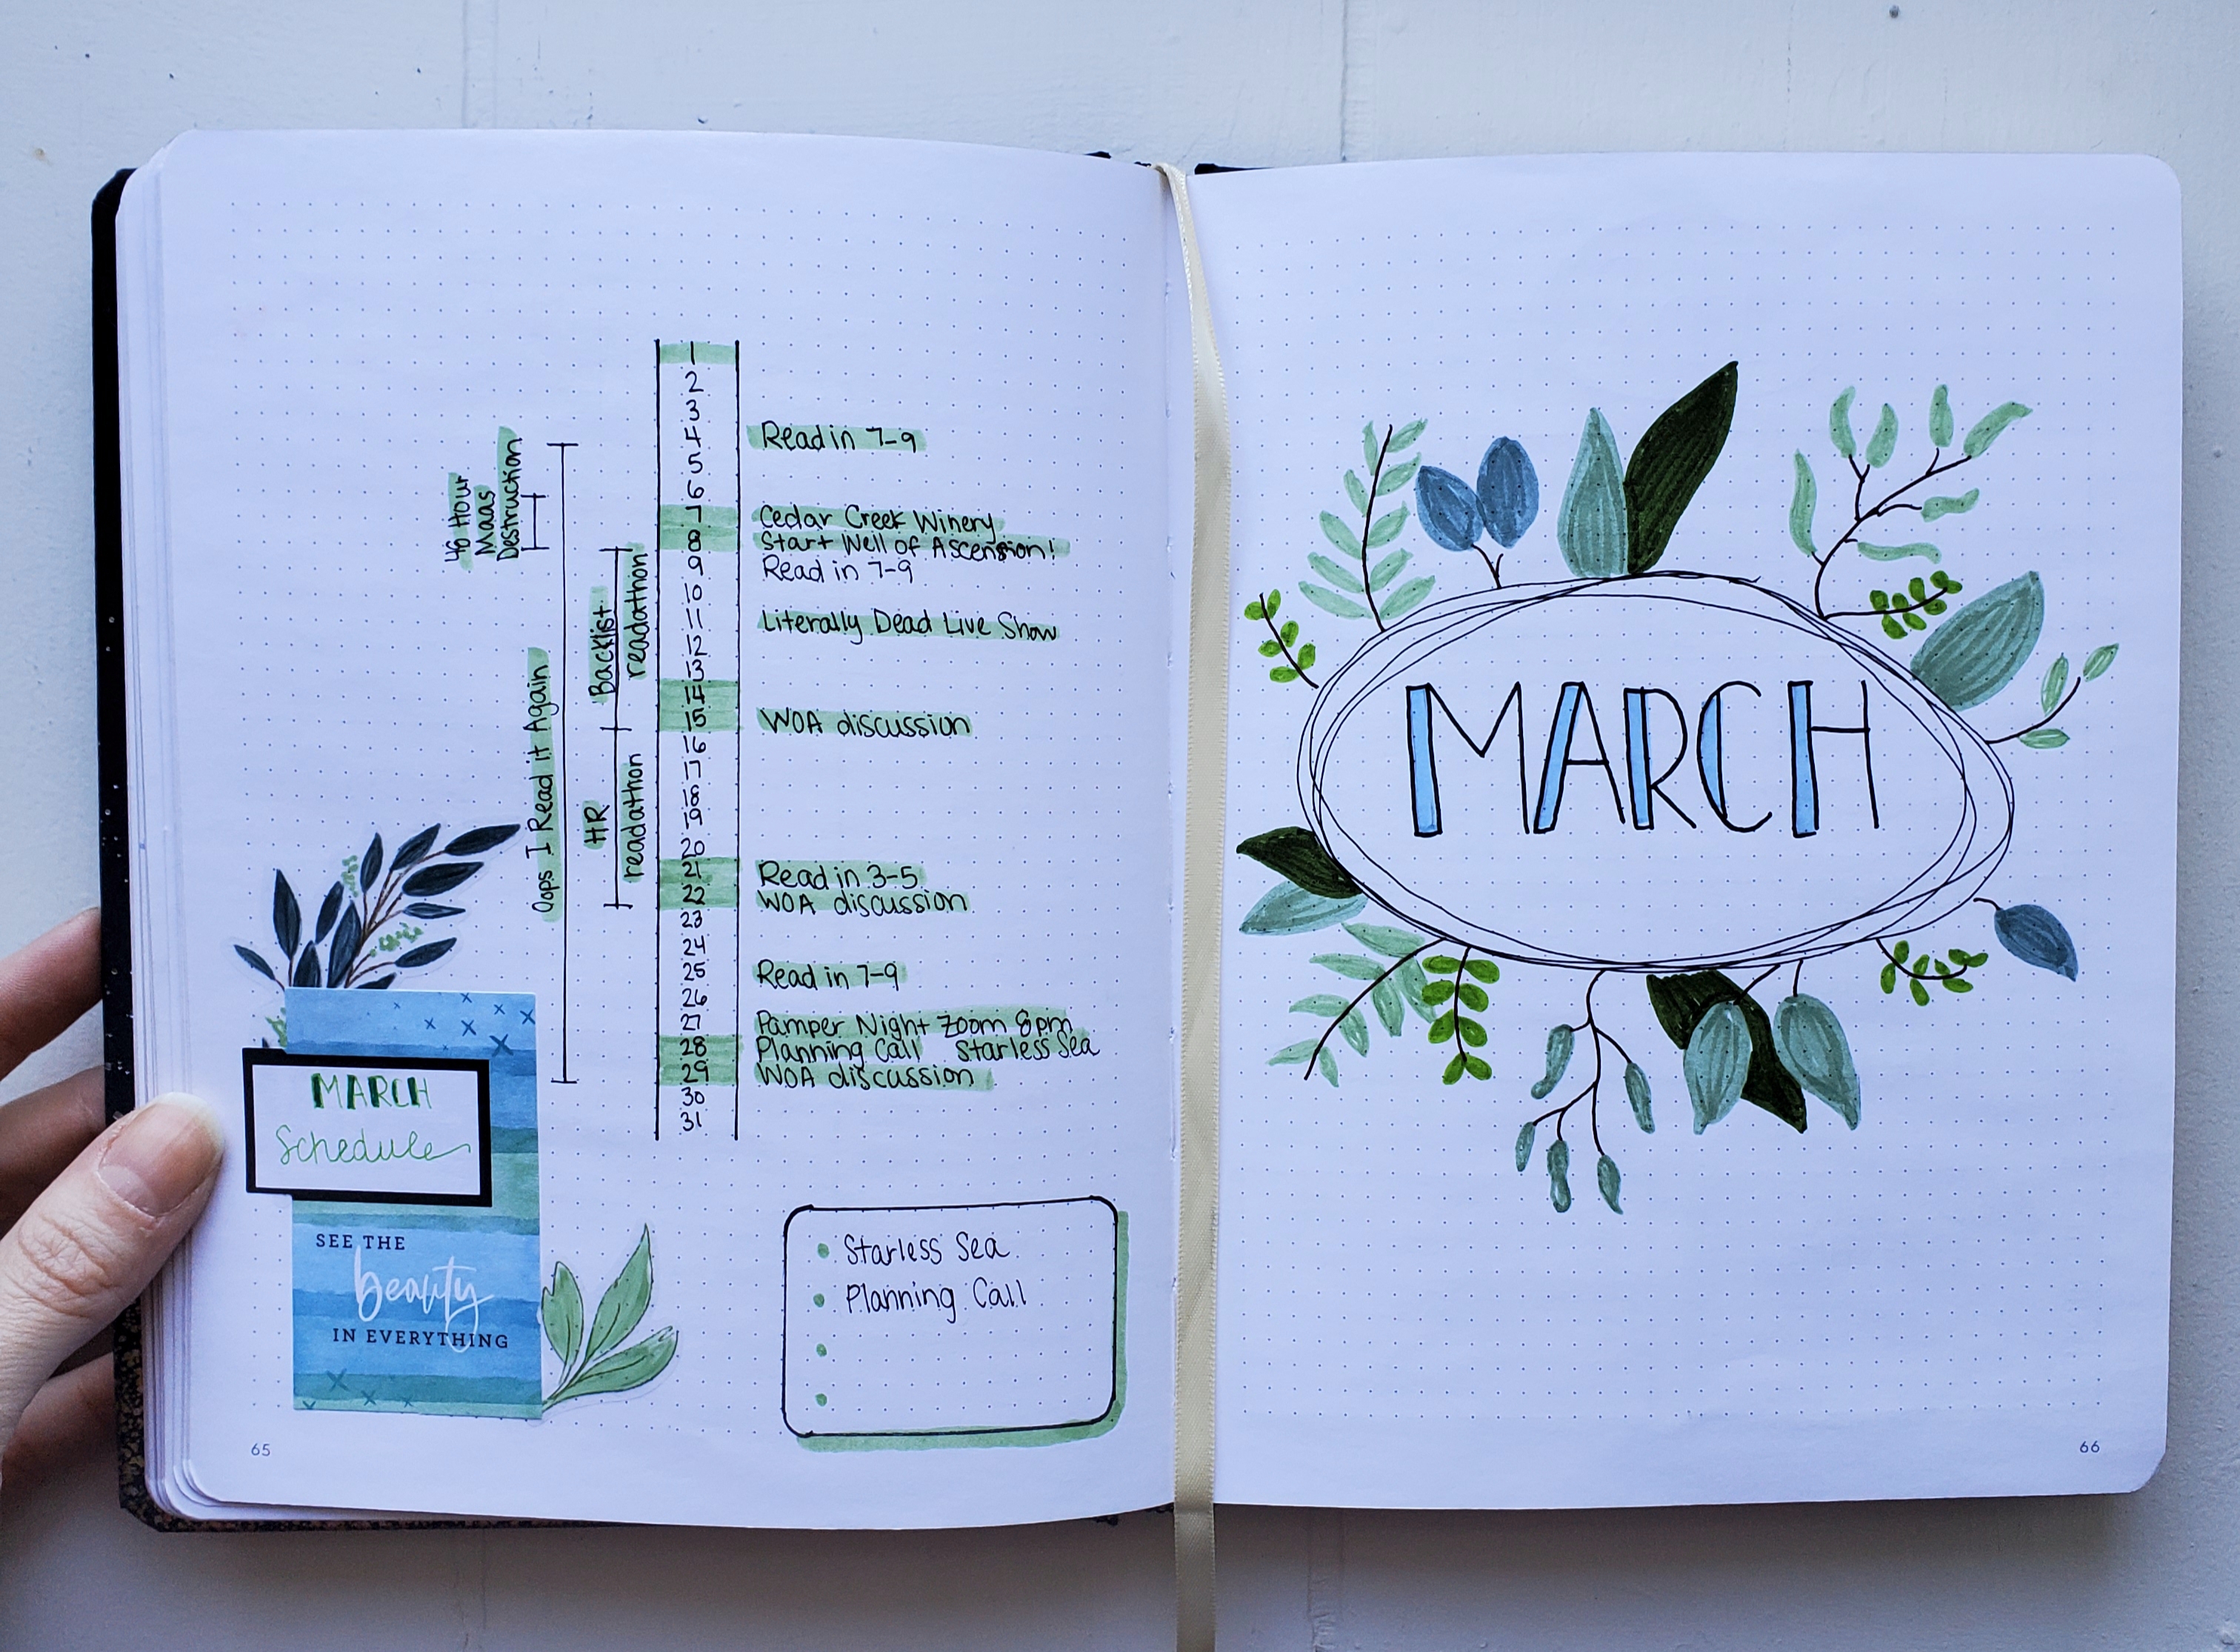 1
2
3
4 Read in 7-9
5
6
7 Cedar Creek Winery
8 Start Well of Ascension!
9 Read in 7-9
10
11 Literally Dead Live Show
12
13
14
15 WOA discussion
16
17
18
19
20
21 Read in 3-5
22 WOA discussion
23
24
25 Read in 7-9
26
27 Pamper Night Zoom 8pm
28 Planning Call Starless Sea
29 WOA discussion
30
31
Hour
Maas
Destruction
Oops I Read it Again
Backlist
readathon
HR
readathon
MARCH
Schedule
SEE THE
beauty
IN EVERYTHING
Starless Sea
Planning Call
65
MARCH
66